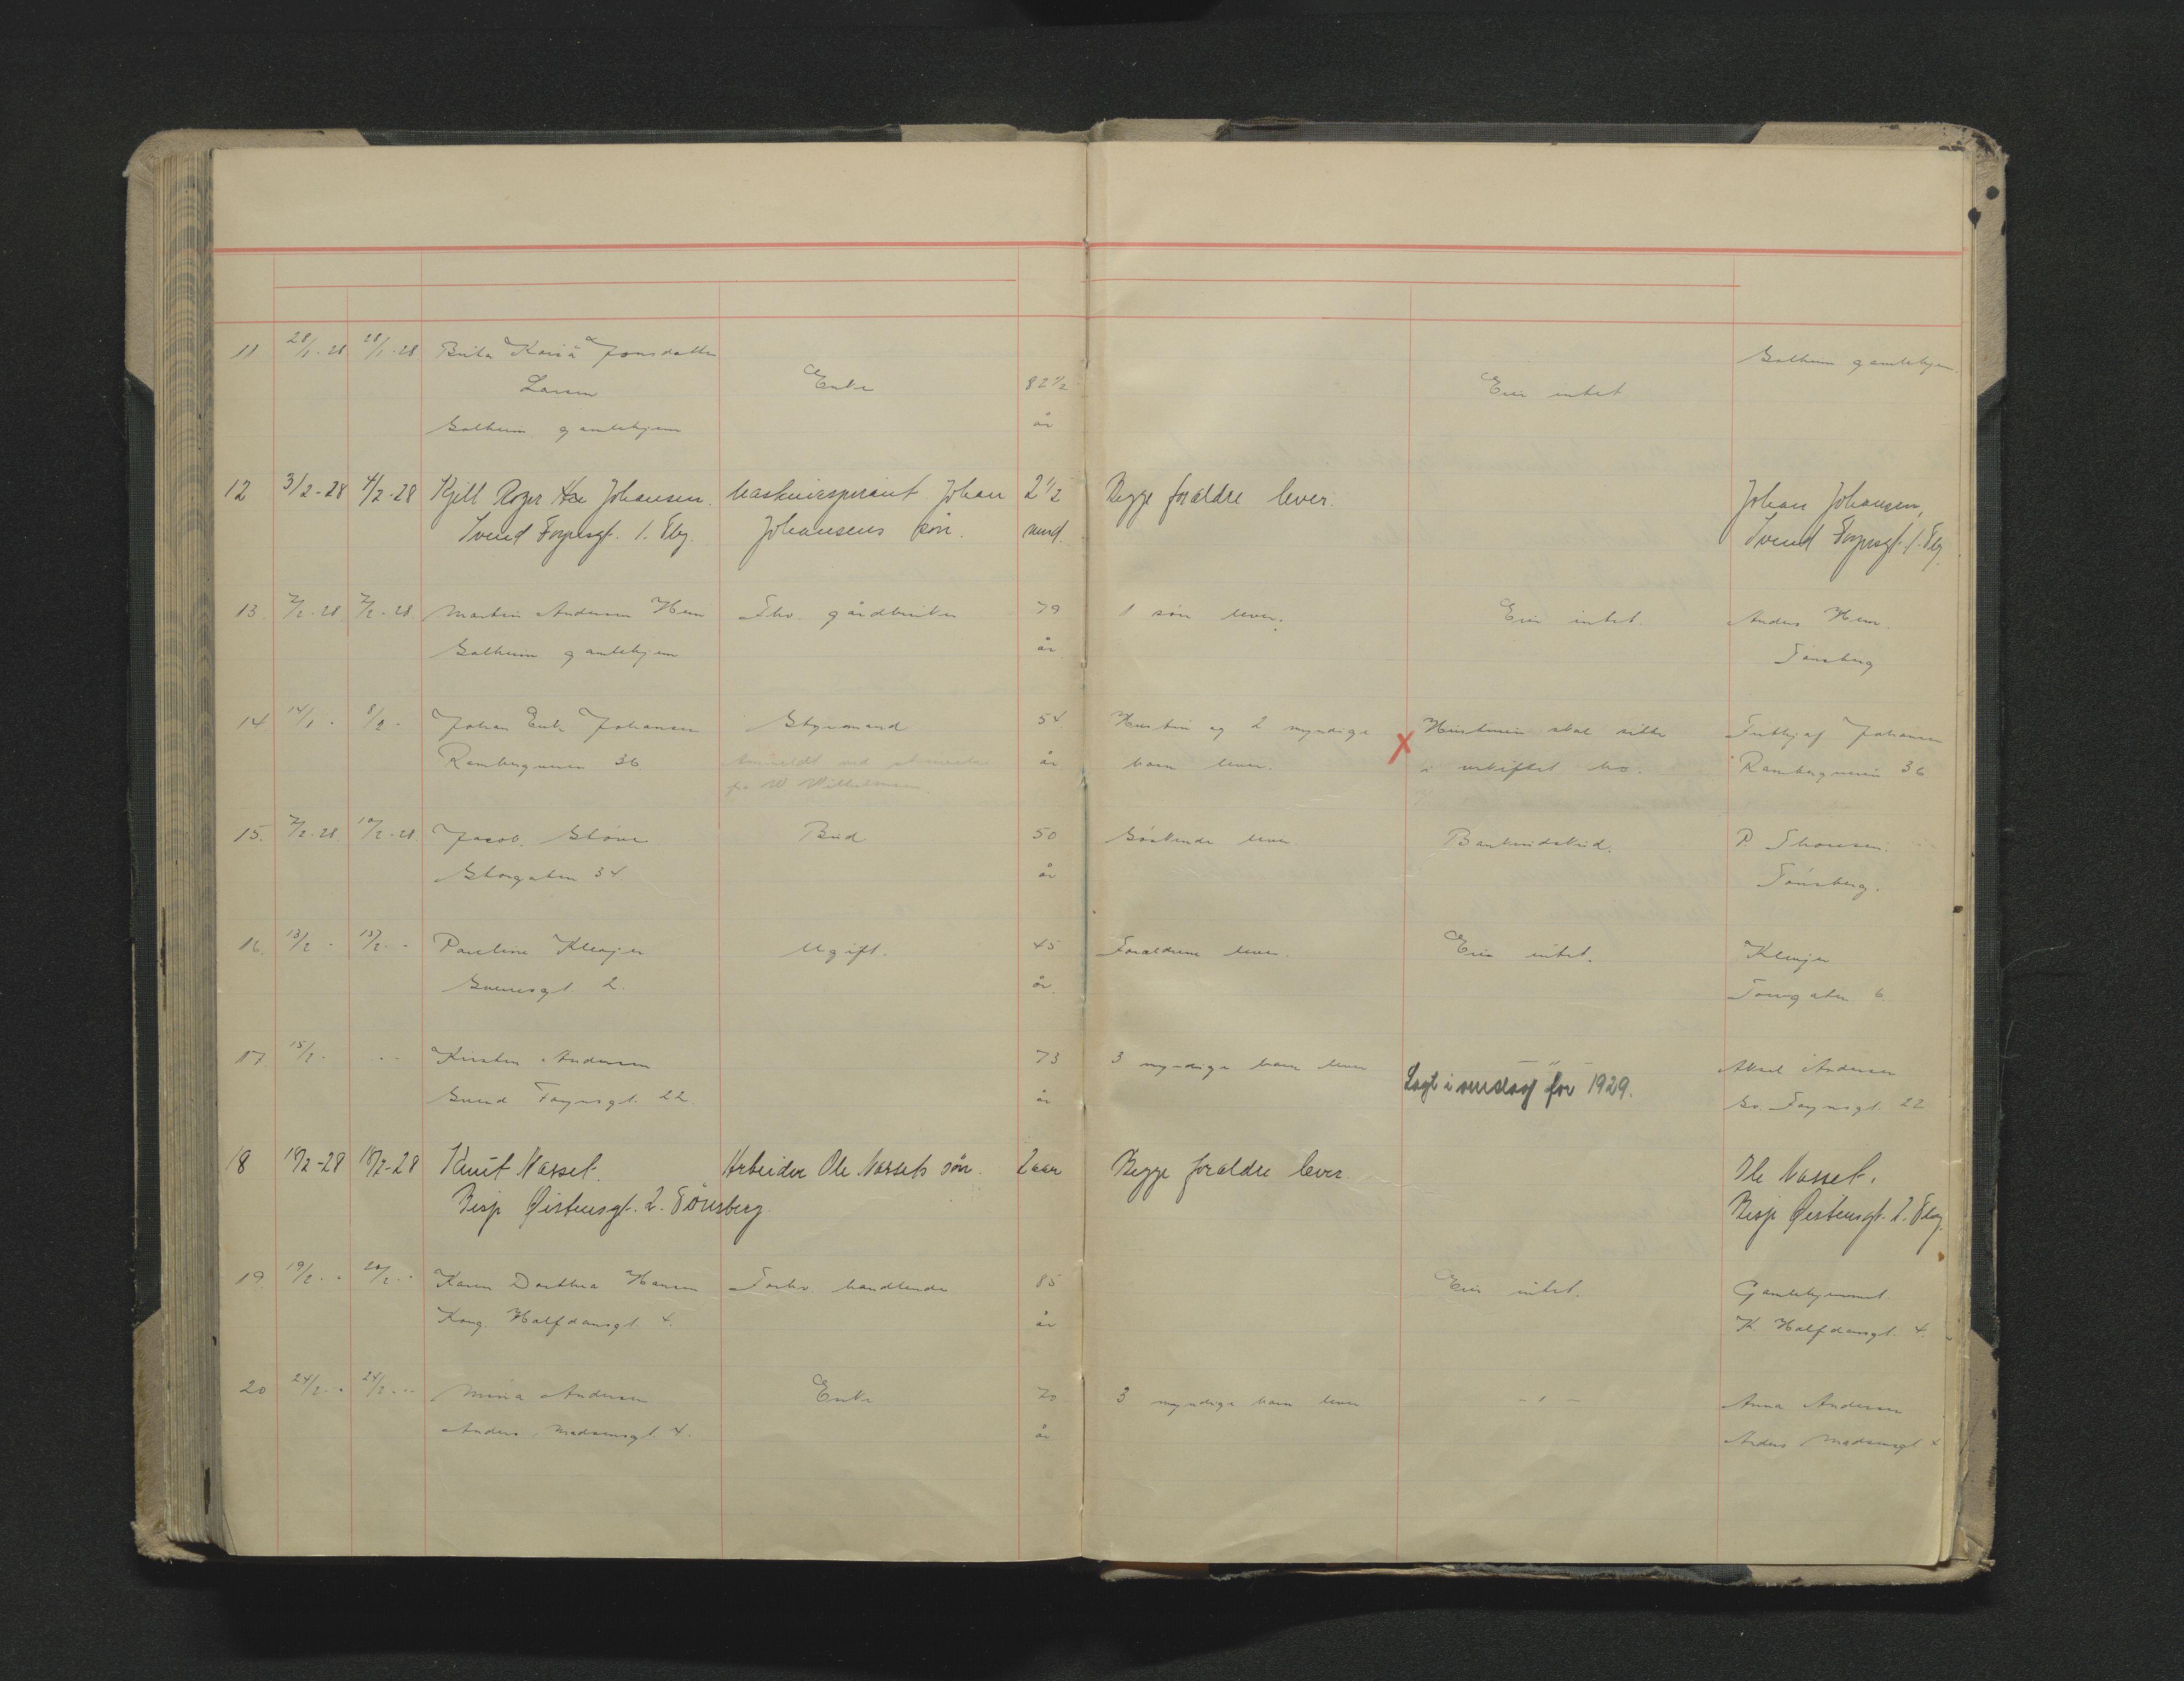 11 28/1-28 28/1-28 Brita Kaisa Jonsdatter
Larsen Enke 82 1/2 Eier intet Solheim gamlehjem
Solheim gamlehjem år
12 3/2-28 4/2-28 Kjell Roger Johansen. Maskinaspirant Johan 2 1/2 Begge forældre lever. Johan Johansen,
Svend Foynsgt. 1. Tbg. Johansens søn. mnd. Svend Foynsgt. 1. Tbg.
13. 7/2-28 7/2-28. Martin Andersen Hem Fhv. gårdbruker 79 1 søn lever. Eier intet. Anders Hem.
Solheim gamlehjem år. Tønsberg
14 14/1 - 8/2 - Johan Enk Johansen Styrmand 54. Hustru og 2 myndige X Hustruen skal sitte Frithjof Johansen
Rambergveien 36 Anmeldt ved år barn lever. i uskiftet bo. Rambergveien 36
fra W. Wilhelmsen.
15. 7/2-28. 10/2-28 Jacob Støve Bud 50 Søskende lever P. Thorsen.
Storgaten 34 år Tønsberg.
16. 13/2 - 13/2 - - Pauline Klenjer Ugift. 45 Forældrene lever. Eier intet. Klenjer
Sverresgt. 2. år. Tourgaten 6.
17 15/2 - - - Kirsten Andersen 73 3 myndige barn lever - " - Aksel Andersen
Svend Foynsgt. 22. år Lagt i omslag for 1929. Sv. Foynsgt. 22
18 18/2-28 18/2-28 Knut Nasset. Arbeider Ole Nassets søn. 2 aar Begge forældre lever. Ole Nasset.
Bisp Øistensgt. 2. Tønsberg. Bisp Øistensgt. 2. Tbg.
19. 19/2 - - 20/2 - - Karen Dorthea Hansen Forhv. handlende 85 Eier intet. Gamlehjemmet.
Kong Halfdansgt. 4. år K. Halfdansgt. 4.
20 24/2 - - 24/2 - - Mina Andersen Enke 70 3 myndige barn lever - " - Anna Andersen
Anders Madsensgt. 4. år Anders Madsensgt 4